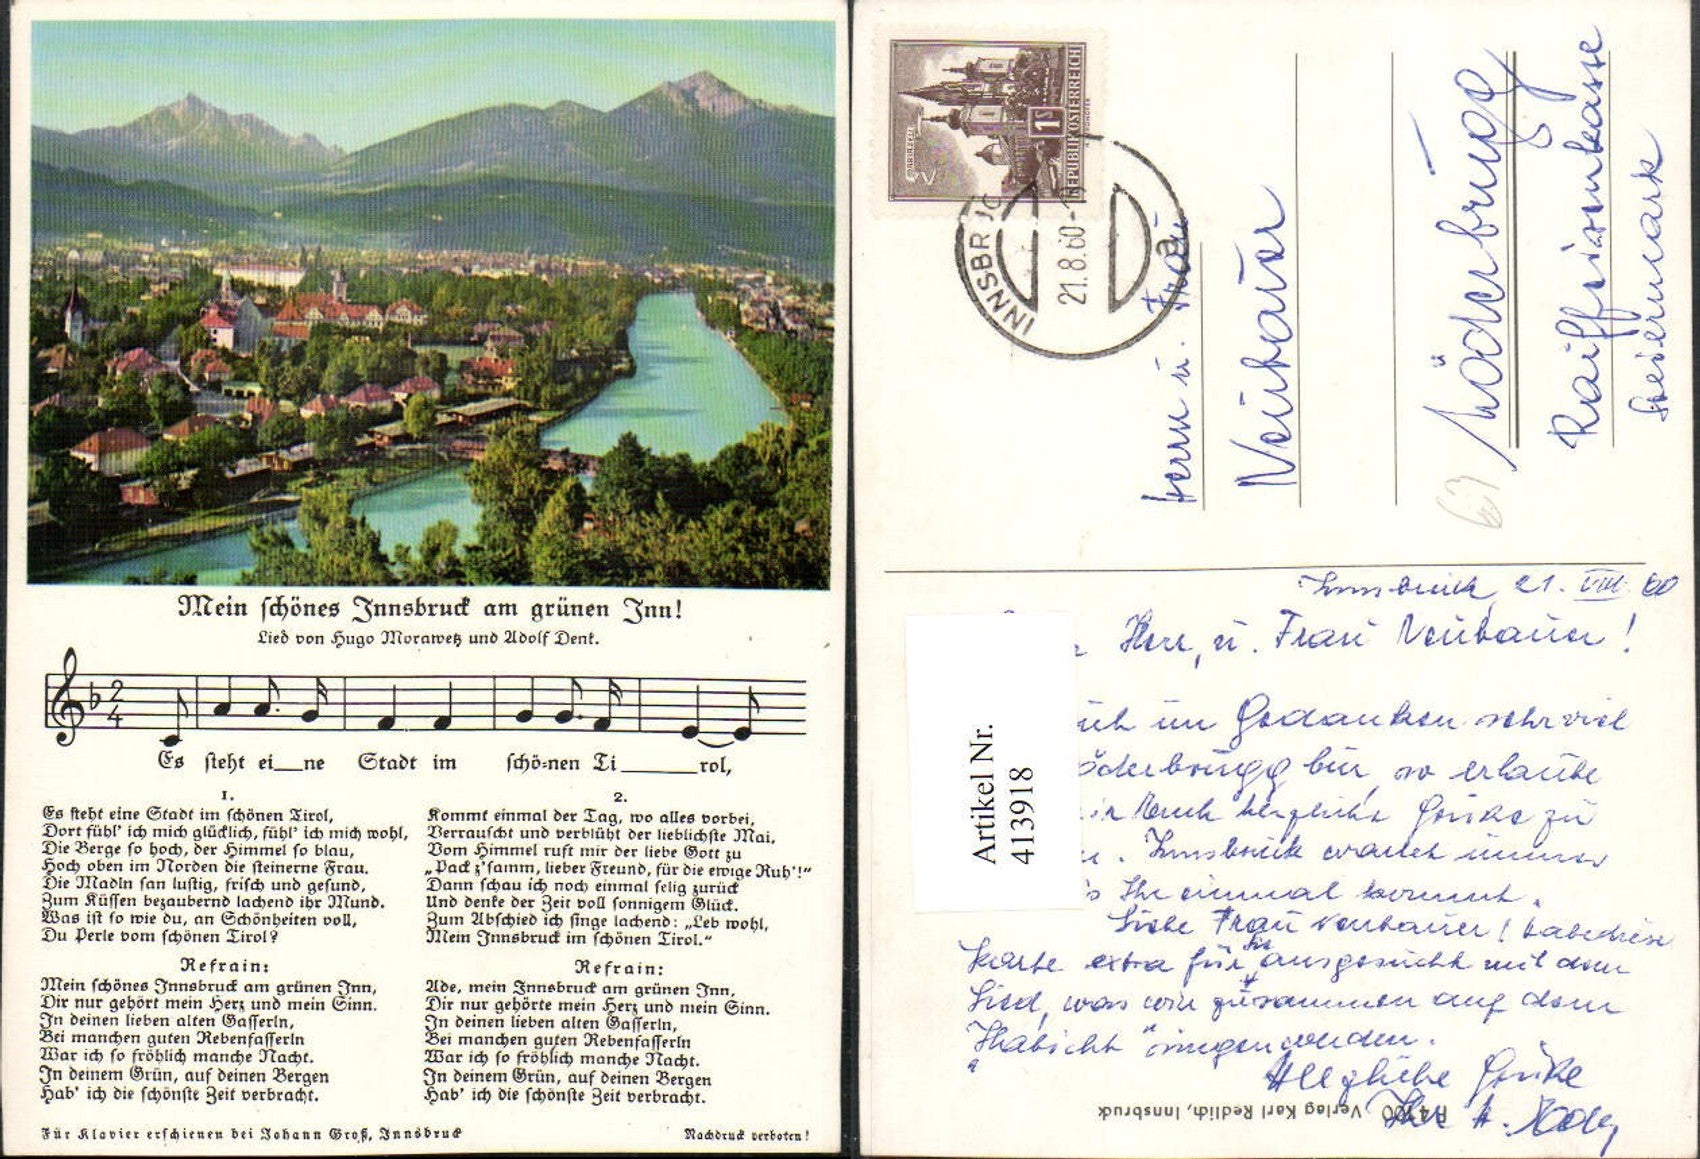 Mein schönes Innsbruck am grünen Inn!
Lied von Hugo Morawetz und Adolf Denk.
2
4
Es steht ei__ne Stadt im schö=nen Ti______rol,
1.
Es steht eine Stadt im schönen Tirol,
Dort fühl' ich mich glücklich, fühl' ich mich wohl,
Die Berge so hoch, der Himmel so blau,
Hoch oben im Norden die steinerne Frau.
Die Madln san lustig, frisch und gesund,
Zum Küssen bezaubernd lachend ihr Mund.
Was ist so wie du, an Schönheiten voll,
Du Perle vom schönen Tirol?
Refrain:
Mein schönes Innsbruck am grünen Inn,
Dir nur gehört mein Herz und mein Sinn.
In deinen lieben alten Gasserln,
Bei manchen guten Rebenfasserln
War ich so fröhlich manche Nacht.
In deinem Grün, auf deinen Bergen
Hab' ich die schönste Zeit verbracht.
2.
Kommt einmal der Tag, wo alles vorbei,
Verrauscht und verblüht der lieblichste Mai,
Vom Himmel ruft mir der liebe Gott zu
„Pack z'samm, lieber Freund, für die ewige Ruh'!"
Dann schau ich noch einmal selig zurück
Und denke der Zeit voll sonnigem Glück.
Zum Abschied ich singe lachend: „Leb wohl,
Mein Innsbruck im schönen Tirol."
Refrain:
Ade, mein Innsbruck am grünen Inn,
Dir nur gehörte mein Herz und mein Sinn.
In deinen lieben alten Gasserln,
Bei manchen guten Rebenfasserln
War ich so fröhlich manche Nacht.
In deinem Grün, auf deinen Bergen
Hab' ich die schönste Zeit verbracht.
Für Klavier erschienen bei Johann Groß, Innsbruck
Nachdruck verboten!
MARIAZELL
1S
REPUBLIK ÖSTERREICH
INNSBRUCK
21.8.60
a
Herrn u. Frau
Neubauer
Möderbrugg
Raiffeisenkasse
Steiermark
Innsbruck, 21. VIII. 60
Herr, u. Frau Neubauer!
ich im Gedanken sehr viel
Möderbrugg bin, so erlaube
mir Euch herzliche Grüße zu
Innsbruck wartet immer
Ihr einmal kommt.
Liebe Frau Neubauer! habe diese
Karte extra für Sie ausgesucht mit dem
Lied, was wir zusammen auf dem
"Habicht" singen werden.
Herzliche Grüße
Ihr A.
Artikel Nr.
413918
Verlag Karl Redlich, Innsbruck